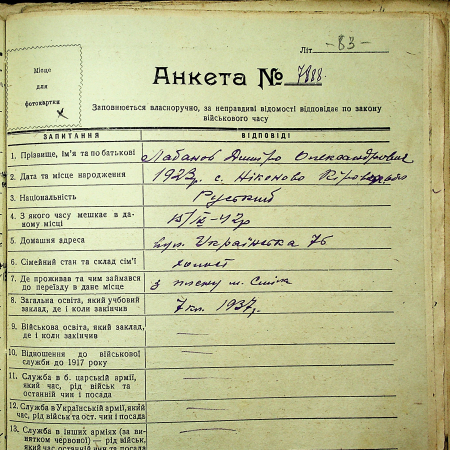 Літ —83—
Місце
для
фотокартки
Анкета № 7888.
Заповнюється власноручно, за неправдиві відомості відповідає по закону
військового часу
ЗАПИТАННЯ ВІДПОВІДІ
1. Прізвище, ім'я та по батькові Лабанов Дмитро Олександрович
2. Дата та місце народження 1923р. с. Ніконово
3. Національність Руський
4. З якого часу мешкає в да-
ному місці 15/ІХ-42р
5. Домашня адреса вул. Українська 76
6. Сімейний стан та склад сім'ї холост
7. Де проживав та чим займався
до переїзду в дане місце з плену м.
8. Загальна освіта, який учбовий
заклад, де і коли закінчив 7 кл. 1937р.
9. Військова освіта, який заклад,
де і коли закінчив —
10. Відношення до військової
служби до 1917 року —
11. Служба в б. царській армії,
який час, рід військ та
останній чин і посада —
12. Служба в Українській армії, який
час, рід військ та ост. чин і посада —
13. Служба в інших арміях (за ви-
нятком червоної) — рід військ,
який час останній чин та посада —